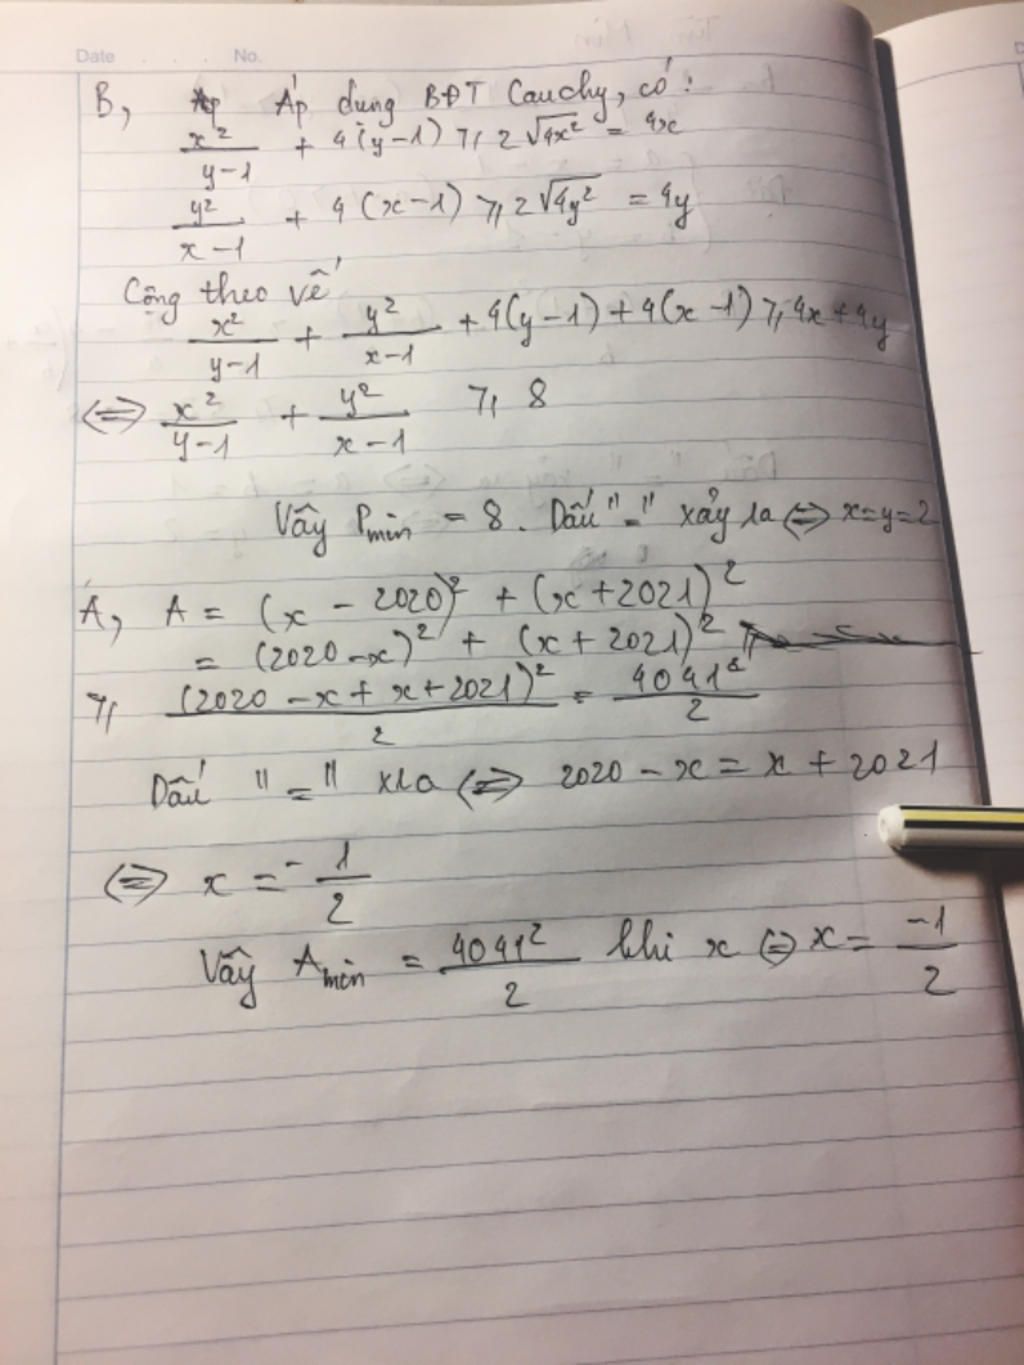 Date . . . No.
B, Áp dụng BĐT Cauchy, có:
x²/(y-1) + 4(y-1) ≥ 2√(4x²) = 4x
y²/(x-1) + 4(x-1) ≥ 2√(4y²) = 4y
Cộng theo vế
x²/(y-1) + y²/(x-1) + 4(y-1) + 4(x-1) ≥ 4x + 4y
⇔ x²/(y-1) + y²/(x-1) ≥ 8
Vậy Pmin = 8. Dấu "=" xảy ra ⇔ x=y=2
A, A = (x - 2020)² + (x+2021)²
= (2020-x)² + (x+2021)²
≥ (2020-x+x+2021)²/2 = 4041²/2
Dấu "=" xra ⇔ 2020-x = x+2021
⇔ x = -1/2
Vậy Amin = 4041²/2 khi x ⇔ x = -1/2